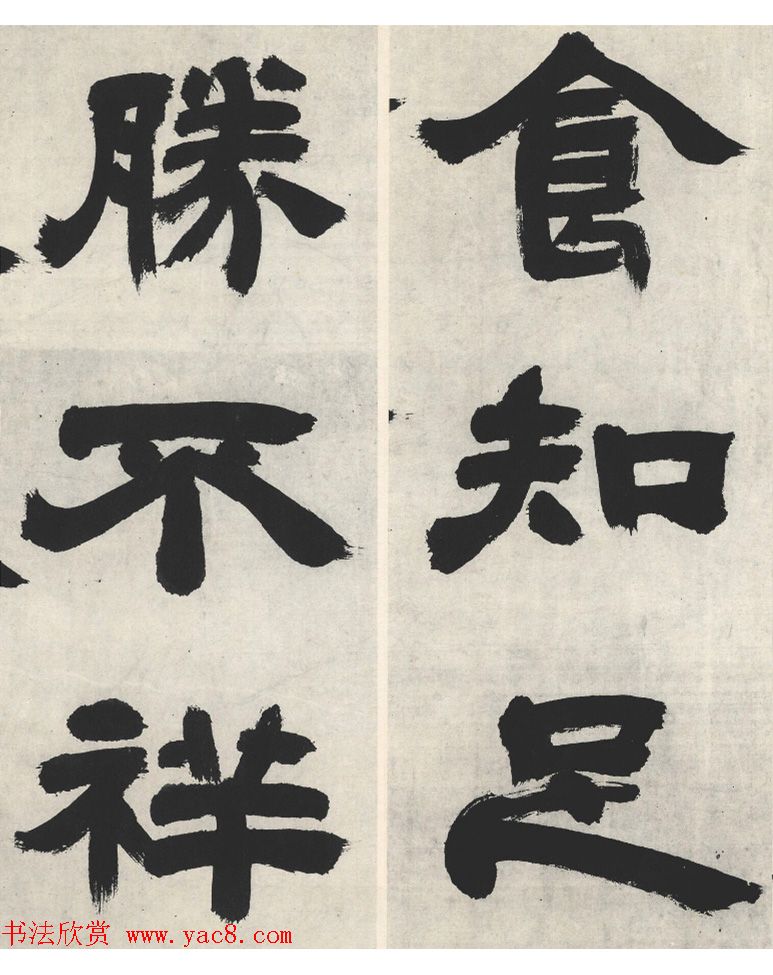 食知足
勝不祥
书法欣赏 www.yac8.com